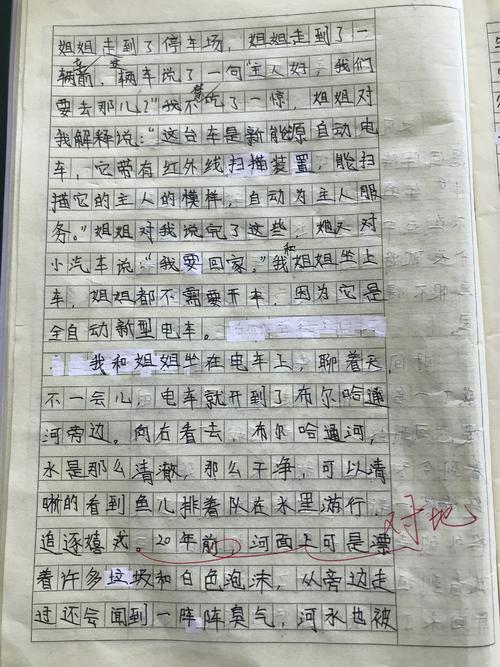 姐姐走到了停车场，姐姐走到了一
辆车前，辆车说了一句"主人好，我们
要去哪儿？"我不禁吃了一惊，姐姐对
我解释说："这台车是新能源自动电
车，它带有红外线扫描装置，能扫
描它的主人的模样，自动为主人服
务。"姐姐对我说完了这些，她又对
小汽车说："我要回家。"我和姐姐坐上
车，姐姐都不需要开车，因为它是
全自动新型电车。
我和姐姐坐在电车上，聊着天，
不一会儿，电车就开到了布尔哈通
河旁边。向右看去，布尔哈通河，
水是那么清澈，那么干净，可以清
晰的看到鱼儿排着队在水里游行，
追逐嬉戏。20年前，河面上可是漂
对地
着许多垃圾和白色泡沫，从旁边走
过还会闻到一阵阵臭气，河水也被